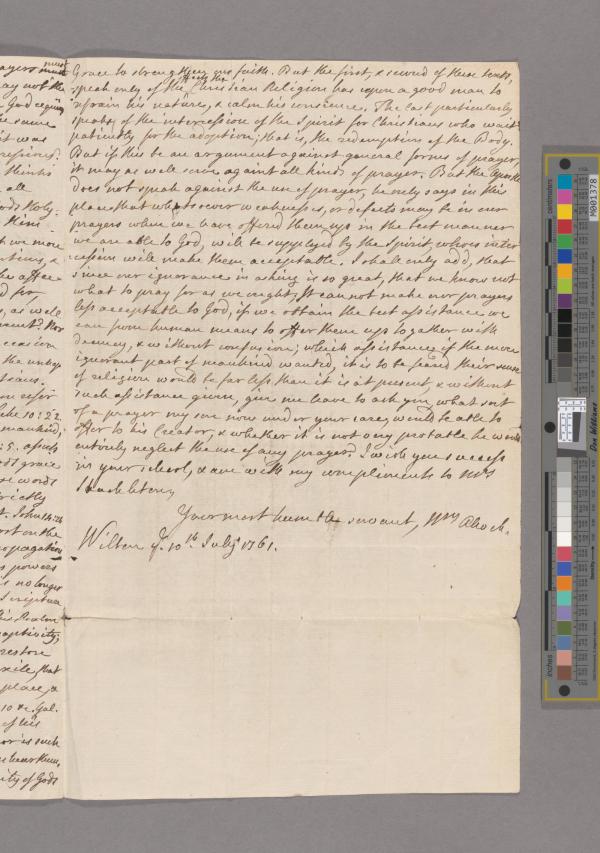 Grace to strengthen our faith. But the first, & second of these texts,
speak only of the effects the Christian Religion has upon a good man to
refrain his nature, & calm his conscience. The last particularly
speaks of the intercession of the Spirit for Christians who wait
patiently for the adoption; that is, the redemption of the Body.
But if this be an argument against general forms of prayer,
it may as well serve against all kinds of prayer. But the Apostle
does not speak against the use of prayer, he only says in this
place, that whatsoever weaknesses, or defects may be in our
prayers when we have offered them up in the best manner
we are able to God, will be supplyed by the Spirit, whose inter
cession will make them acceptable. I shall only add, that
since our ignorance in asking is so great, that we know not
what to pray for as we ought, It can not make our prayers
less acceptable to God, if we obtain the best assistance we
can from human means to offer them up together with
decency, & without confusion; which assistance if the more
ignorant part of mankind wanted, it is to be feared their sense
of religion would be far less than it is at present, & without
such assistance given, give me leave to ask you, what sort
of a prayer my son now under your care, would be able to
offer to his Creator, & whether it is not very probable he would
entirely neglect the use of any prayer? I wish you success
in your school, & am with my compliments to Mrs

Your most humble servant, Wm
Wilton ye 10th July 1761.
ayers must
ay not the
the same
it was
thinks
all
Gods Holy
Him
t we more
as well
Nor
ccasion
Luke 10:22
mankind,
Gods grace
se words
rictly
John 14:
ost on the
propagation
s powers
is no longer
Scripture
his Realm
captivity,
restore
exile, that
place, &
10 &c. Gal.
of his
or is such
hear them,
ity of Gods
centimeters
M001378
Don Williams
inches